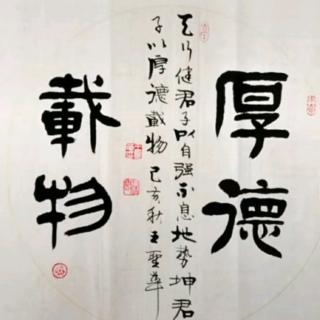 厚德
載物
天行健君子以自强不息地势坤君
子以厚德載物 己亥秋王聖華